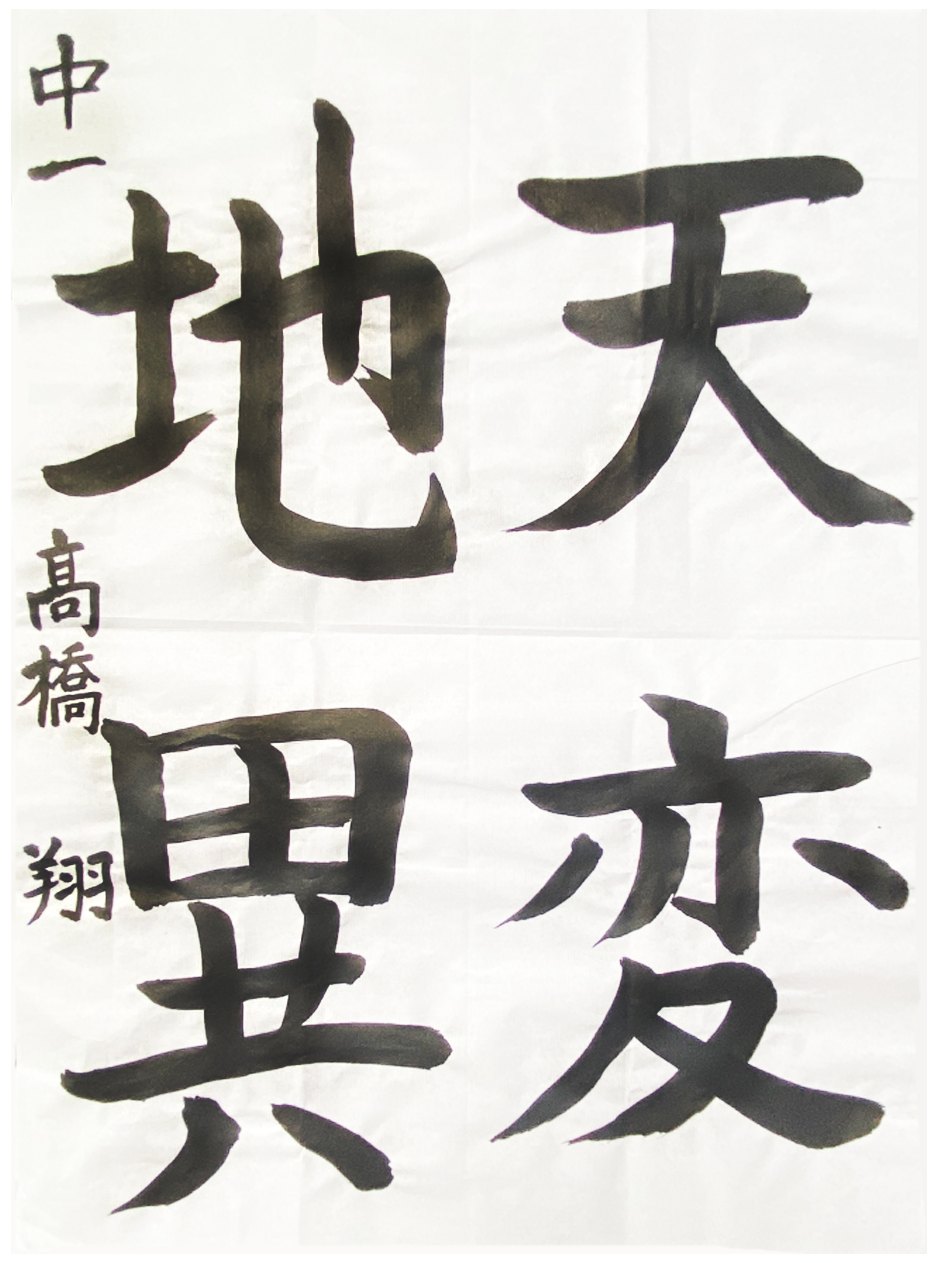 天変
地異
中一 髙橋 翔